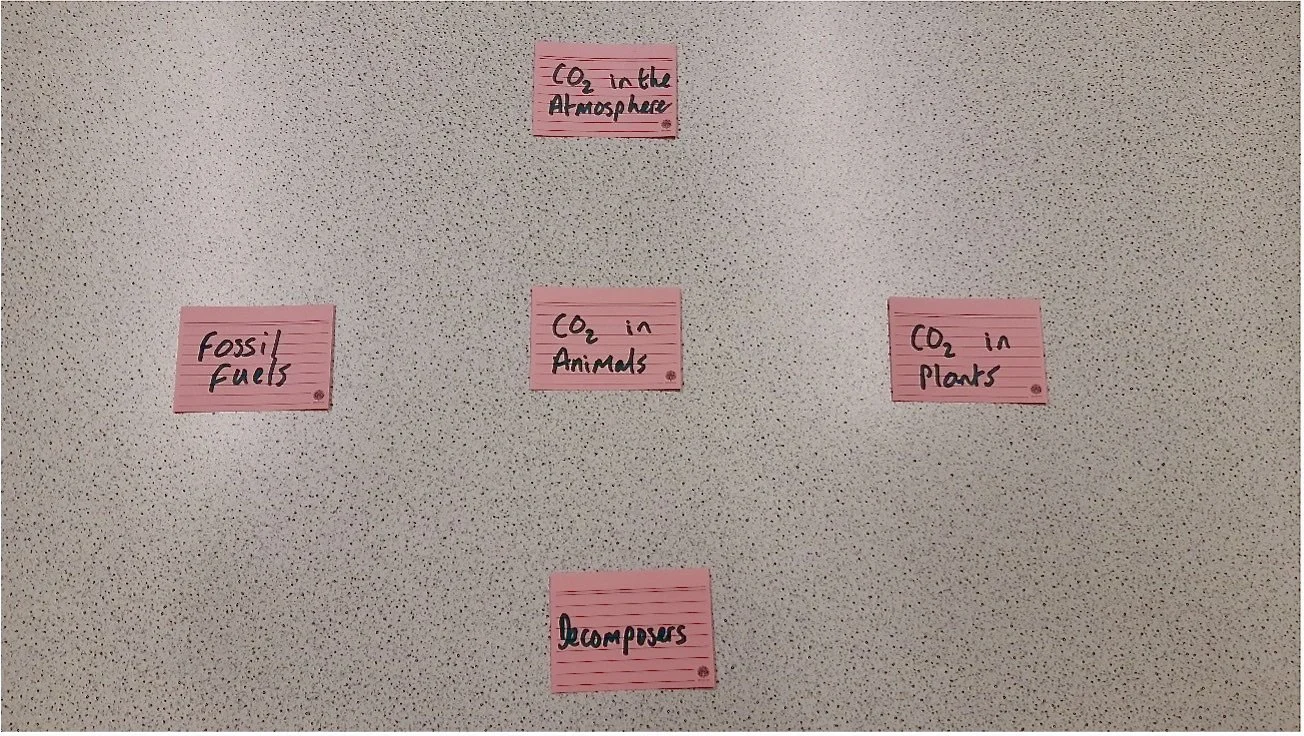 CO₂ in the
Atmosphere
Fossil
Fuels
CO₂ in
Animals
CO₂ in
Plants
Decomposers